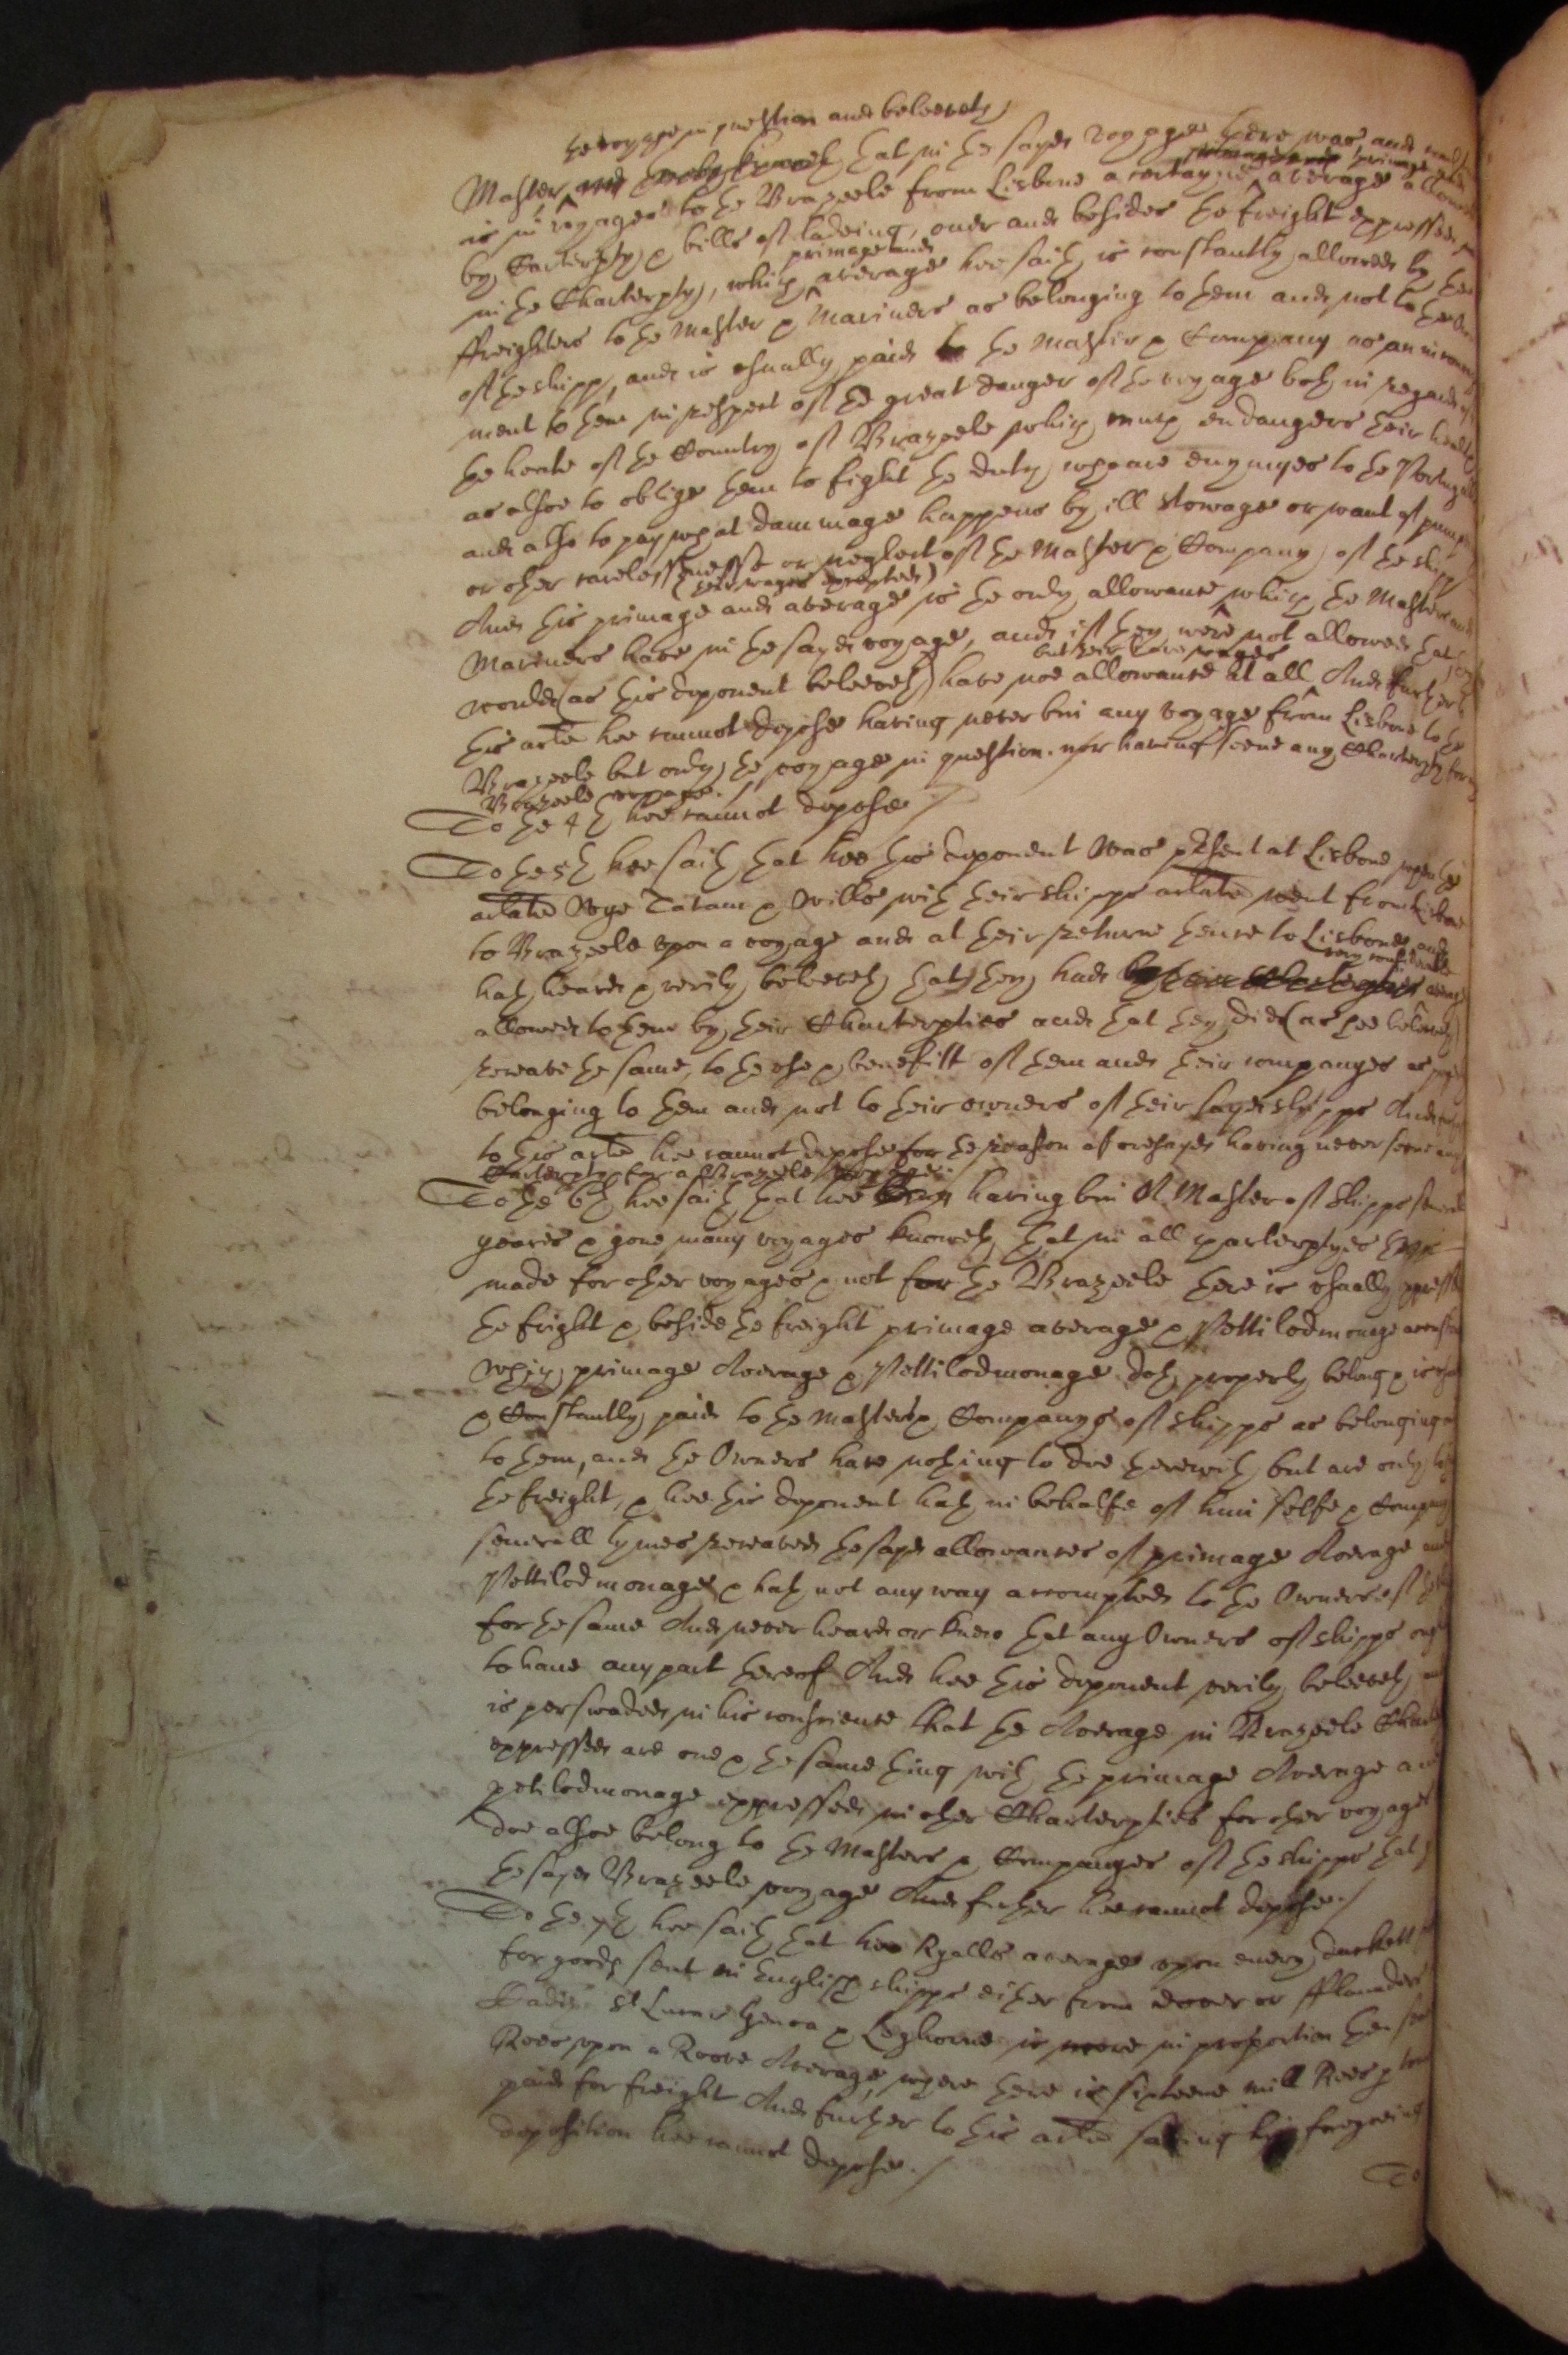 the voyage in question and beleeveth
Master and thereby knoweth that in the sayd voyage there was, and usually
is in voyages to the Brazeele from Lisbone a certayne primage and average allowed
by Charterpty & bills of ladeing, over and besides the freight expressed
in the Charterpty, which primage and average hee saith is constantly allowed by the
ffreighters to the Master & Mariners as belonging to them and not to the
of the shipp, and is usually paid to the Master & Company as an incourage
ment to them in respect of the great danger of the voyage both in regard of
the heate of the Country of Brazeele which much endangers their health
as alsoe to oblige them to fight the dutch who are enymyes to the Portugalls
and also to pay what dammage happens by ill stowage or want of pump
or other carelessnesse or neglect of the Master & Company of the shipp
And this primage and average (their wages excepted) is the only allowance which the Master and
Mariners have in the sayd voyage, and if they were not allowed that they
would (as this deponent beleeveth) have noe allowance at all but their bare wages And further to
this arle hee cannot depose having never bin any voyage from Lisbone to the
Brazeele but only the voyage in question. nor having seene any Charterpty for
Brazeele voyage./
To the 4th hee cannot depose /
To the 5th hee saith that hee this deponent was present at Lisbone when the
arlate Wye Tatam & Wills with their shipps arlate went from Lisbone
to Brazeele upon a voyage and at their returne thence to Lisbone and
hath heard & verily beleeveth that they had by their Charterpties average
allowed to them by their Charterpties and that they did (as hee beleeveth)
receave the same, to the use & benefitt of them and their companyes as
belonging to them and not to their owners of their sayd shipps And further
to this arle hee cannot depose for the reason aforesayd having never seene any
Charterpty for a Brazeele voyage.
To the 6th hee saith that hee having bin A Master of shipps severall
yeares & gone many voyages knoweth that in all charterptyes
made for other voyages & not for the Brazeele there is usually expressed
the fright & beside the freight primage average & Pettilodmonage
which primage Average & Pettilodmonage doth properly belong & is
& Constantly paid to the Masters & Companys of shipps as belonging
to them, and the Owners have nothing to doe therewith but are only
the freight, & hee this deponent hath in behalfe of him selfe & Company
severall tymes receaved the sayd allowances of primage Average and
Pettilodmonage & hath not any way accompted to the Owners of
for the same And never heard or knew that any Owners of shipps ought
to have any part thereof And hee this deponent verily beleeveth and
is perswaded in his conscience that the Average in Brazeele
expressed are one & the same thing with the primage Average and
petilodmonage expressed in other Charterpties for other voyages
doe alsoe belong to the Masters & Companyes of the shipps that
the sayd Brazeele voyage And further hee cannot depose./
To the 7th hee saith that two Ryalls average upon every duckett
for goods sent in English shipps either from dover or fflanders
Cadiz St Lucar Genoa & Leghorne is more in proportion then
Rees upon a Roove Average, where there is sixteene mill Rees
paid for freight And further to this arle saving his foregoeing
deposition hee cannot depose./
To